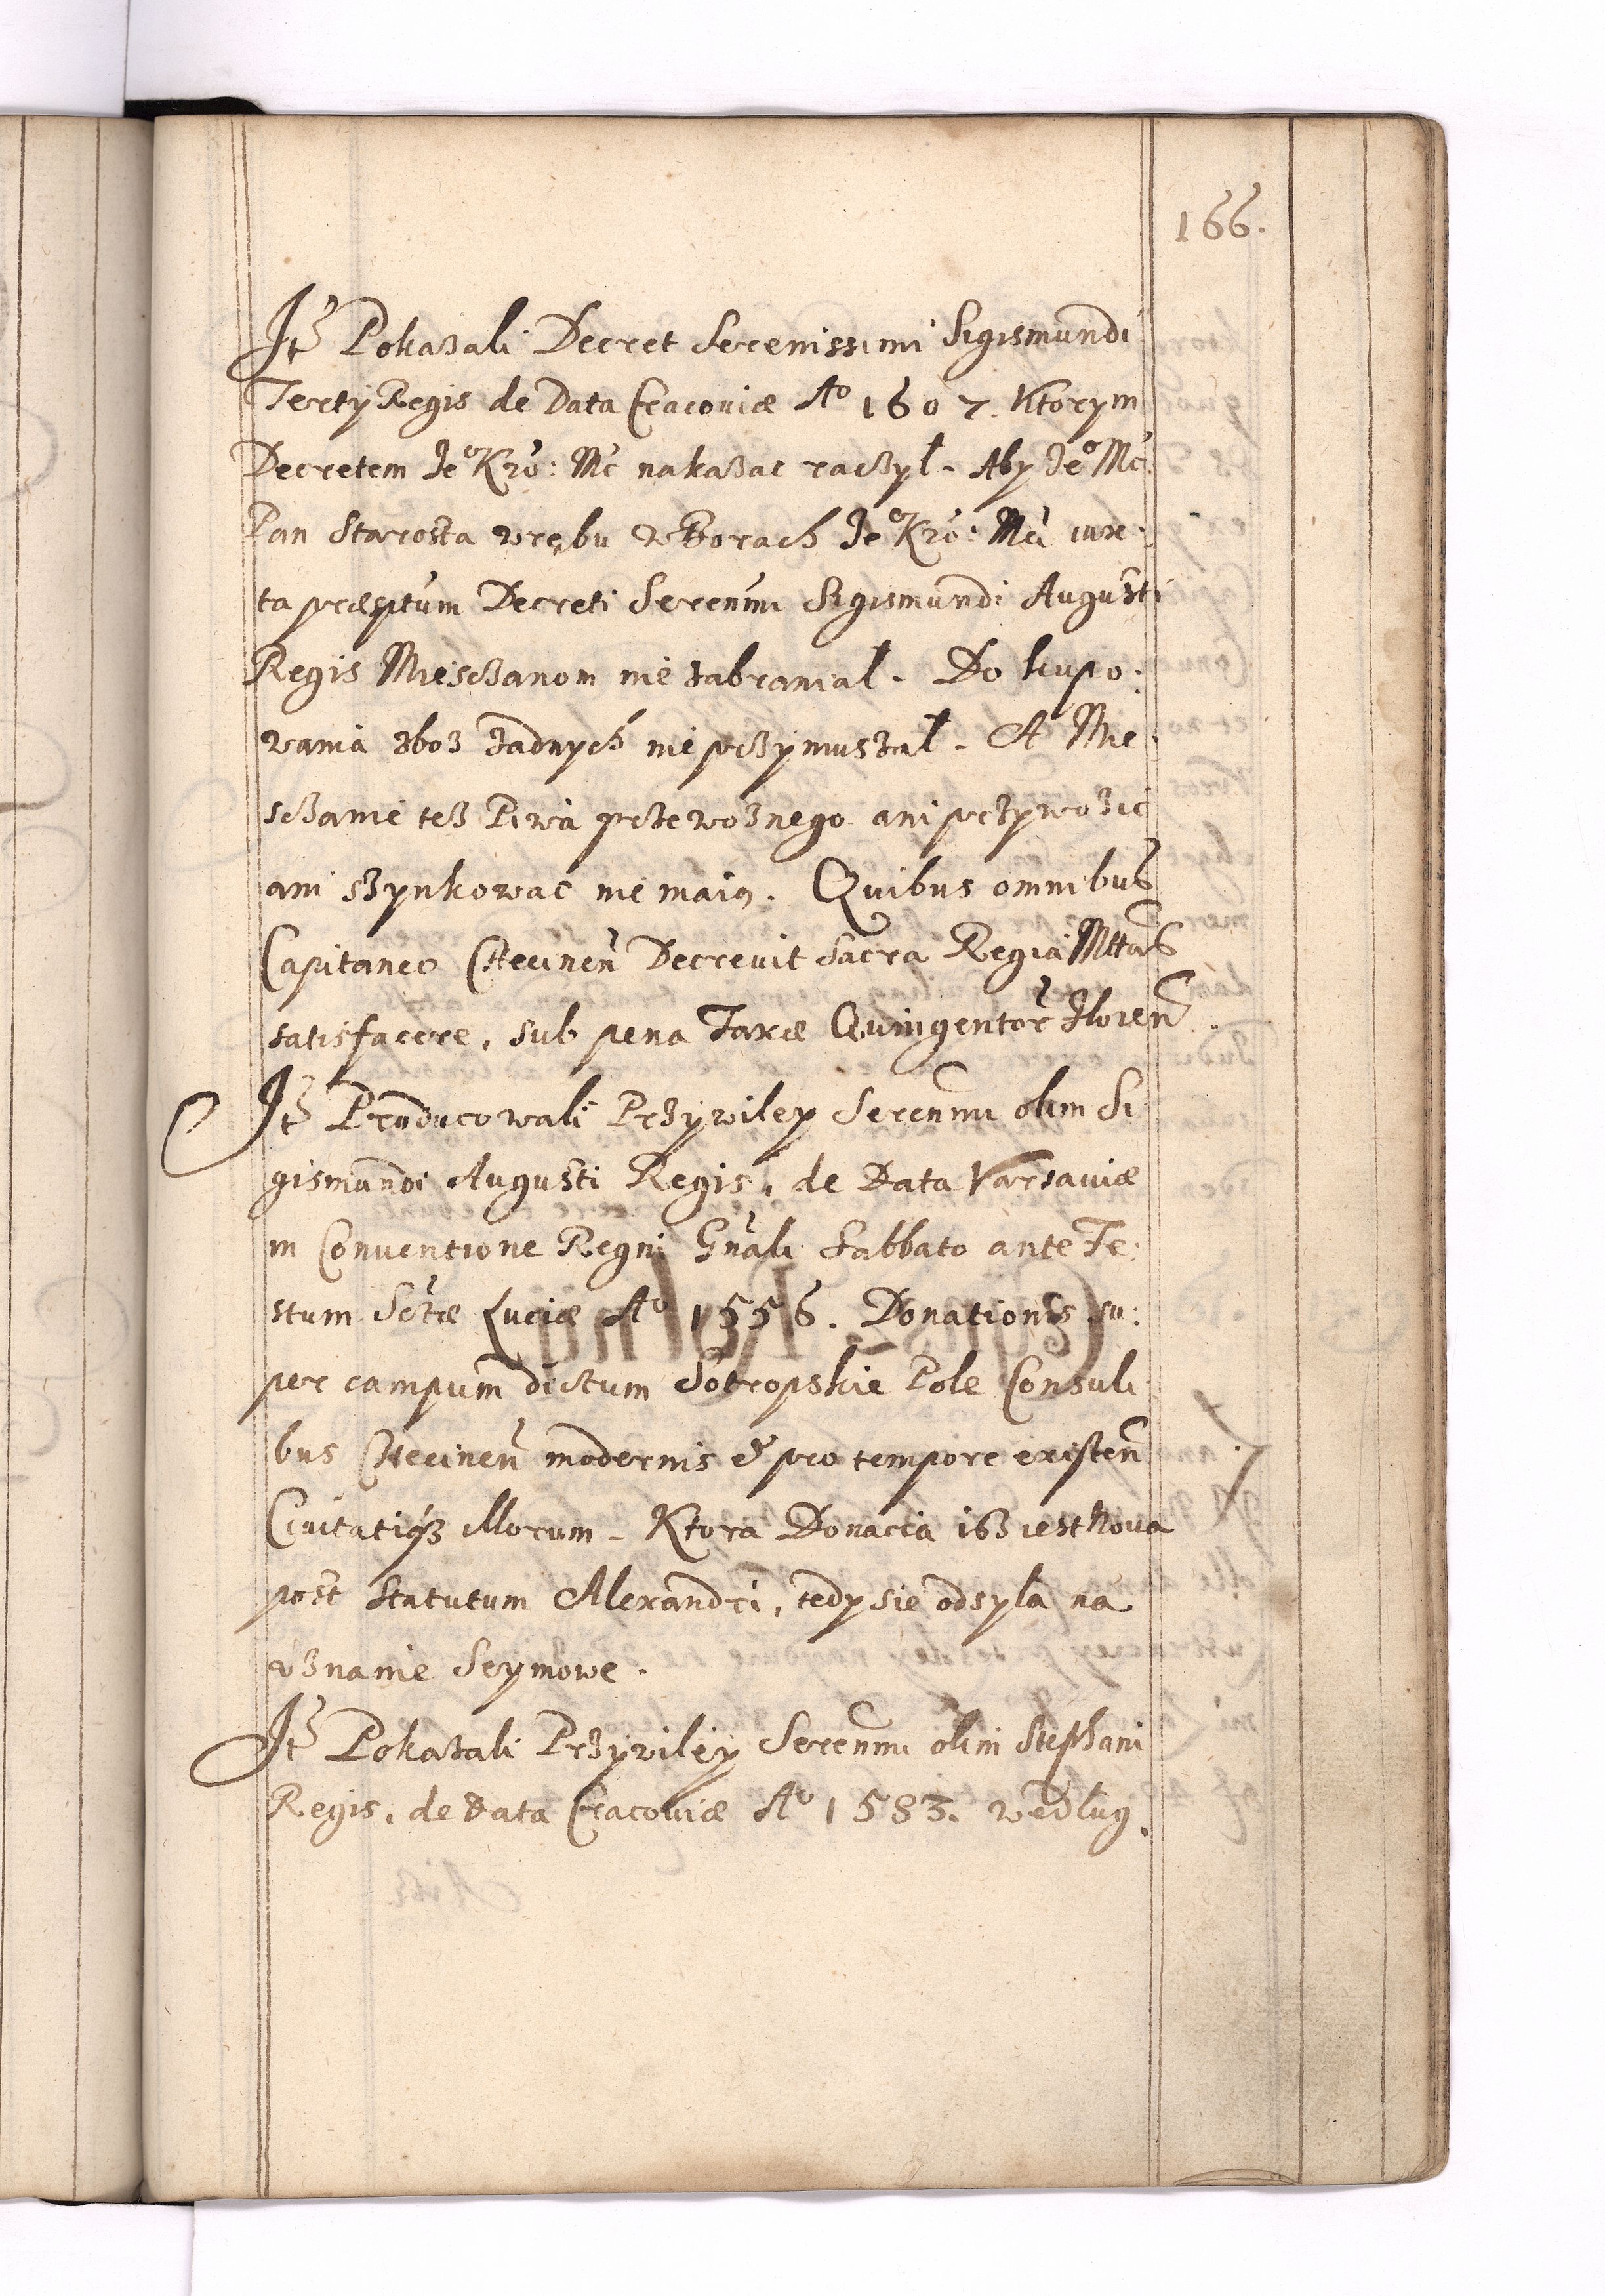 166.
It Pokazali Decret Serenissimi Sigismundi
Tertÿ Regis de Data Cracoviæ Aº 1607. Ktorym
Decretem Jeº Kró: Mć nakazac raczył. Aby Jeº Mć.
Pan Starosta vrębu w Borach Jeº Kró: Mći iux:
ta præsptum Decreti Serenmi Sigismundi Augusti
Regis Miesczanom nie zabraniał. Do kupo:
wania zboz zadnych nie przymuszał. A Mie:
sczanie tez Piwa przewoznego ani przywozic
ani szynkowac nie maią. Quibus omnibus
Capitaneo Checinen Decrevit Sacra Regia Mttas
satisfacere, sub pena Taxæ Quingentor Floren.
It Produco wali Przywiley Serenmi olim Si
gismundi Augusti Regis, de Data Varsaviæ
in Conventione Regni Gnali Sabbato ante Fe:
stum Sctæ Luciæ Aº 1556. Donationis su:
per campum dictum Sotropskie Pole Consuli
bus Checinen modernis & pro tempore existen
Civitatiqz illorum. Ktora Donacia iz iest Nova
post Statutum Alexandri, tedy sie odsyla na
vznanie Seymowe.
It Pokazali Przywiley Serenmi olim Stephani
Regis, de Data Cracoviæ Aº 1583. wedlug.